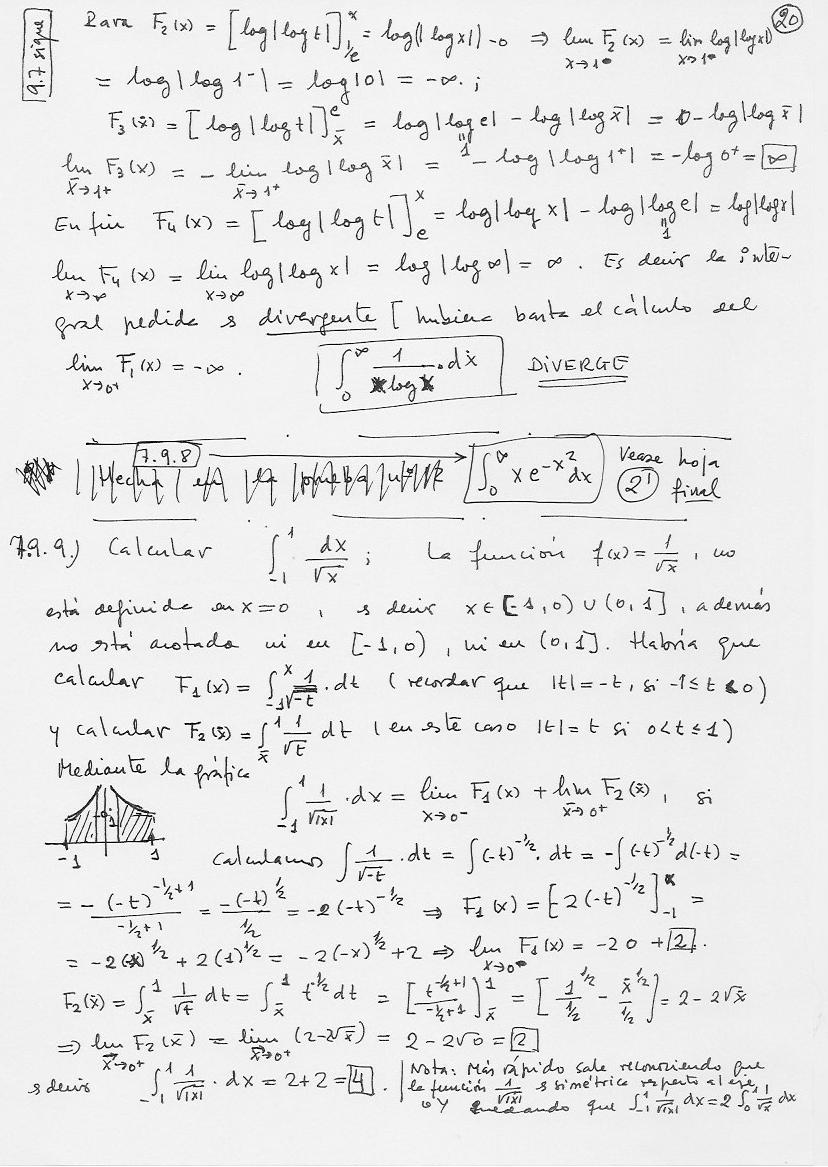 20
9.7 sigue
Para F₂(x) = [log|log t|]ˣ₁/ₑ = log(|log x|) - 0 ⇒ lim F₂(x) = lim log|log x|
x→1⁻ x→1⁻
= log|log 1⁻| = log|0| = -∞. ;
F₃(x̄) = [log|log t|]ᵉₓ̄ = log|log e| - log|log x̄| = 0 - log|log x̄|
1
lim F₃(x) = - lim log|log x̄| = - log|log 1⁺| = -log 0⁺ = ∞
x̄→1⁺ x̄→1⁺
En fin F₄(x) = [log|log t|]ˣₑ = log|log x| - log|log e| = log|log x|
1
lim F₄(x) = lim log|log x| = log|log ∞| = ∞. Es decir la inte-
x→∞ x→∞
gral pedida es divergente [hubiera basta el cálculo del
lim F₁(x) = -∞. ∫₀^∞ 1/(x log x) · dx DIVERGE
x→0⁺
7.9.8 → ∫₀^∞ x e^(-x²) dx Vease hoja
Hecha en la 21 final
7.9.9.) Calcular ∫₋₁¹ dx/√x ; La función f(x) = 1/√x, no
está definida en x=0, es decir x∈[-1,0)∪(0,1], además
no está acotada ni en [-1,0), ni en (0,1]. Habría que
calcular F₁(x) = ∫₋₁ˣ 1/√-t · dt (recordar que |t|=-t, si -1≤t<0)
y calcular F₂(x̄) = ∫ₓ̄¹ 1/√t dt (en este caso |t|=t si 0<t≤1)
Mediante la gráfica
∫₋₁¹ 1/√|x| · dx = lim F₁(x) + lim F₂(x̄), si
x→0⁻ x̄→0⁺
1
-1 1
calculamos ∫ 1/√-t · dt = ∫(-t)^(-1/2) · dt = -∫(-t)^(-1/2) d(-t) =
= -(-t)^(-1/2+1)/(-1/2+1) = -(-t)^(1/2)/(1/2) = -2(-t)^(-1/2) ⇒ F₁(x) = [-2(-t)^(-1/2)]ˣ₋₁ =
= -2(-x)^(1/2) + 2(1)^(1/2) = -2(-x)^(1/2) + 2 ⇒ lim F₁(x) = -2 0 + 2.
x→0⁻
F₂(x̄) = ∫ₓ̄¹ 1/√t dt = ∫ₓ̄¹ t^(-1/2) dt = [t^(-1/2+1)/(-1/2+1)]¹ₓ̄ = [1^(1/2)/(1/2) - x̄^(1/2)/(1/2)] = 2 - 2√x̄
⇒ lim F₂(x̄) = lim (2-2√x̄) = 2 - 2√0 = 2
x̄→0⁺ x̄→0⁺
es decir ∫₋₁¹ 1/√|x| · dx = 2+2 = 4.
Nota: Más rápido sale reconociendo que
la función 1/√|x| es simétrica respecto al eje
OY quedando que ∫₋₁¹ 1/√|x| dx = 2∫₀¹ 1/√x dx